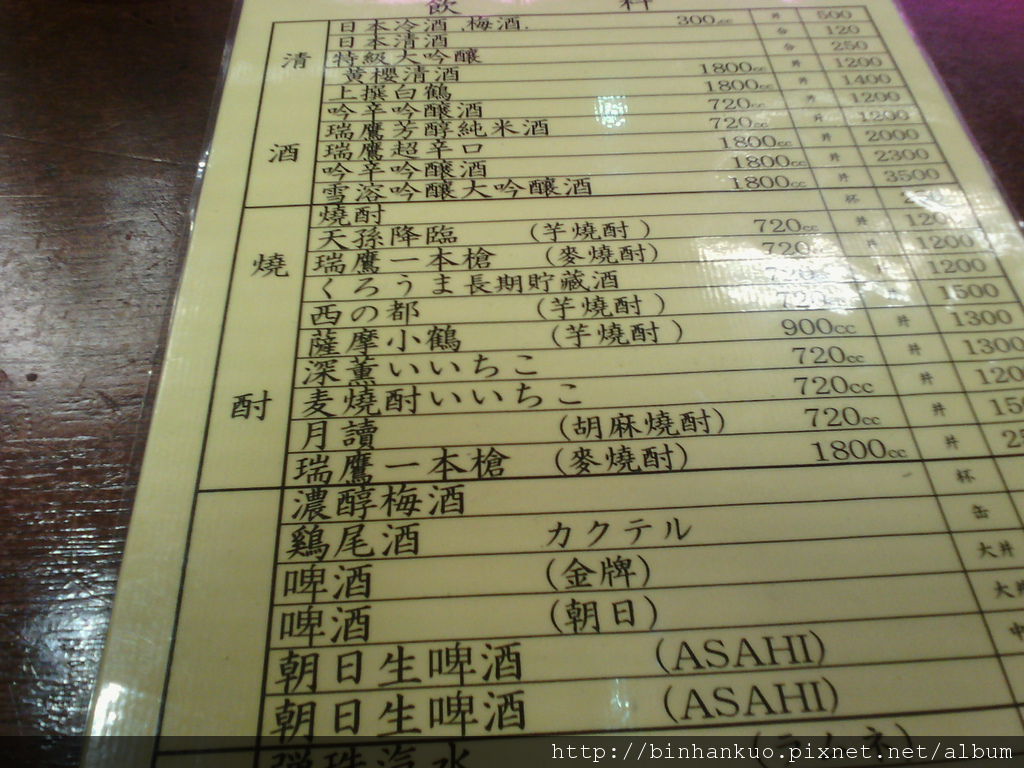 飲 料
清酒
日本冷酒.梅酒. 300.cc 丼 500
日本清酒 合 120
特級大吟釀 合 250
黃櫻清酒 1800cc 丼 1200
上撰白鶴 1800cc 丼 1400
吟辛吟釀酒 720cc 丼 1200
瑞鷹芳醇純米酒 720cc 丼 1200
瑞鷹超辛口 1800cc 丼 2000
吟辛吟釀酒 1800cc 丼 2300
雪溶吟釀大吟釀酒 1800cc 丼 3500
燒酎
燒酎 杯
天孫降臨 (芋燒酎) 720cc 丼 120
瑞鷹一本槍 (麥燒酎) 720 丼 1200
くろうま長期貯藏酒 720cc 1200
西の都 (芋燒酎) 720cc 1500
薩摩小鶴 (芋燒酎) 900cc 丼 1300
深薫いいちこ 720cc 丼 1300
麦燒酎いいちこ 720cc 丼 120
月讀 (胡麻燒酎) 720cc 丼
瑞鷹一本槍 (麥燒酎) 1800cc 丼
濃醇梅酒 杯
鷄尾酒 カクテル 缶
啤酒 (金牌) 大丼
啤酒 (朝日)
朝日生啤酒 (ASAHI)
朝日生啤酒 (ASAHI)
彈珠汽水 (ラムネ)
http://binhankuo.pixnet.net/album